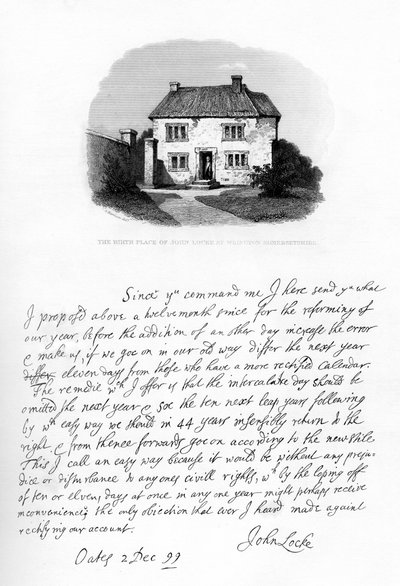 THE BIRTH PLACE OF JOHN LOCKE AT WRINGTON SOMERSETSHIRE.
Since yu command me I here send yu what
I proposd above a twelvemonth since for the reforming of
our year, before the addition of an other day increase the error
& make us, if we goe on in our old way differ the next year
differ eleven days from those who have a more rectified Calendar.
The remedie wch I offer is that the intercalar day should be
omitted the next year & soe the ten next leap years following
by wch easy way we should in 44 years insensibly return to the
right & from thence forwards goe on according to the new stile
This I call an easy way because it would be without any preju-
dice or disturbance to any ones civill rights, wch by the loping off
of ten or eleven days at once in any one year might perhaps receive
inconvenience, the only objection that ever I heard made against
rectifying our account.
John Locke
Oates 2 Dec 99